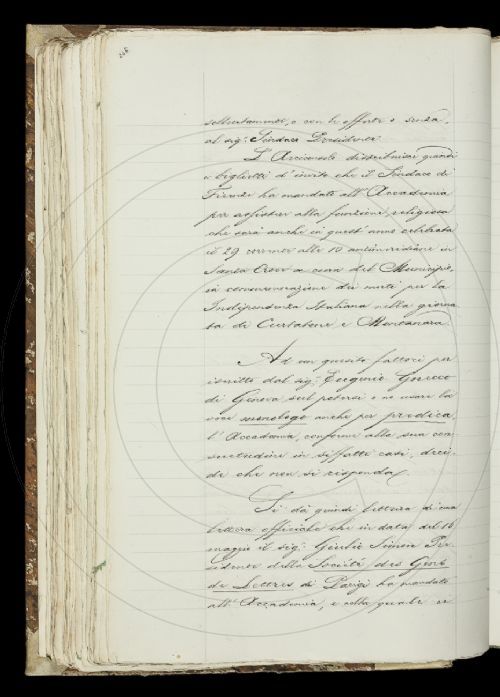 sollecitamente, e con le offerte o senza,
al sig. Sindaco Presidente.
L'Arciconsolo distribuisce quindi
i biglietti d'invito che il Sindaco di
Firenze ha mandato all'Accademia
per assistere alla funzione religiosa
che sarà anche in quest'anno celebrata
il 29 corrente alle 10 antimeridiane in
Santa Croce a cura del Municipio,
in commemorazione dei morti per la
Indipendenza Italiana nella giorna
ta di Curtatone e Montanara.
Ad un quesito fattoci per
iscritto dal sig. Eugenio
di Genova sul potersi o no usare la
voce monologo anche per predica
l'Accademia, conforme alla sua con
suetudine in siffatti casi, deci-
de che non si risponda.
Si dà quindi lettura di una
lettera officiale che in data del 16
maggio il sig. Giulio Simon Pre
sidente della Société des Gens
de Lettres di Parigi ha mandato
all'Accademia, e nella quale ci